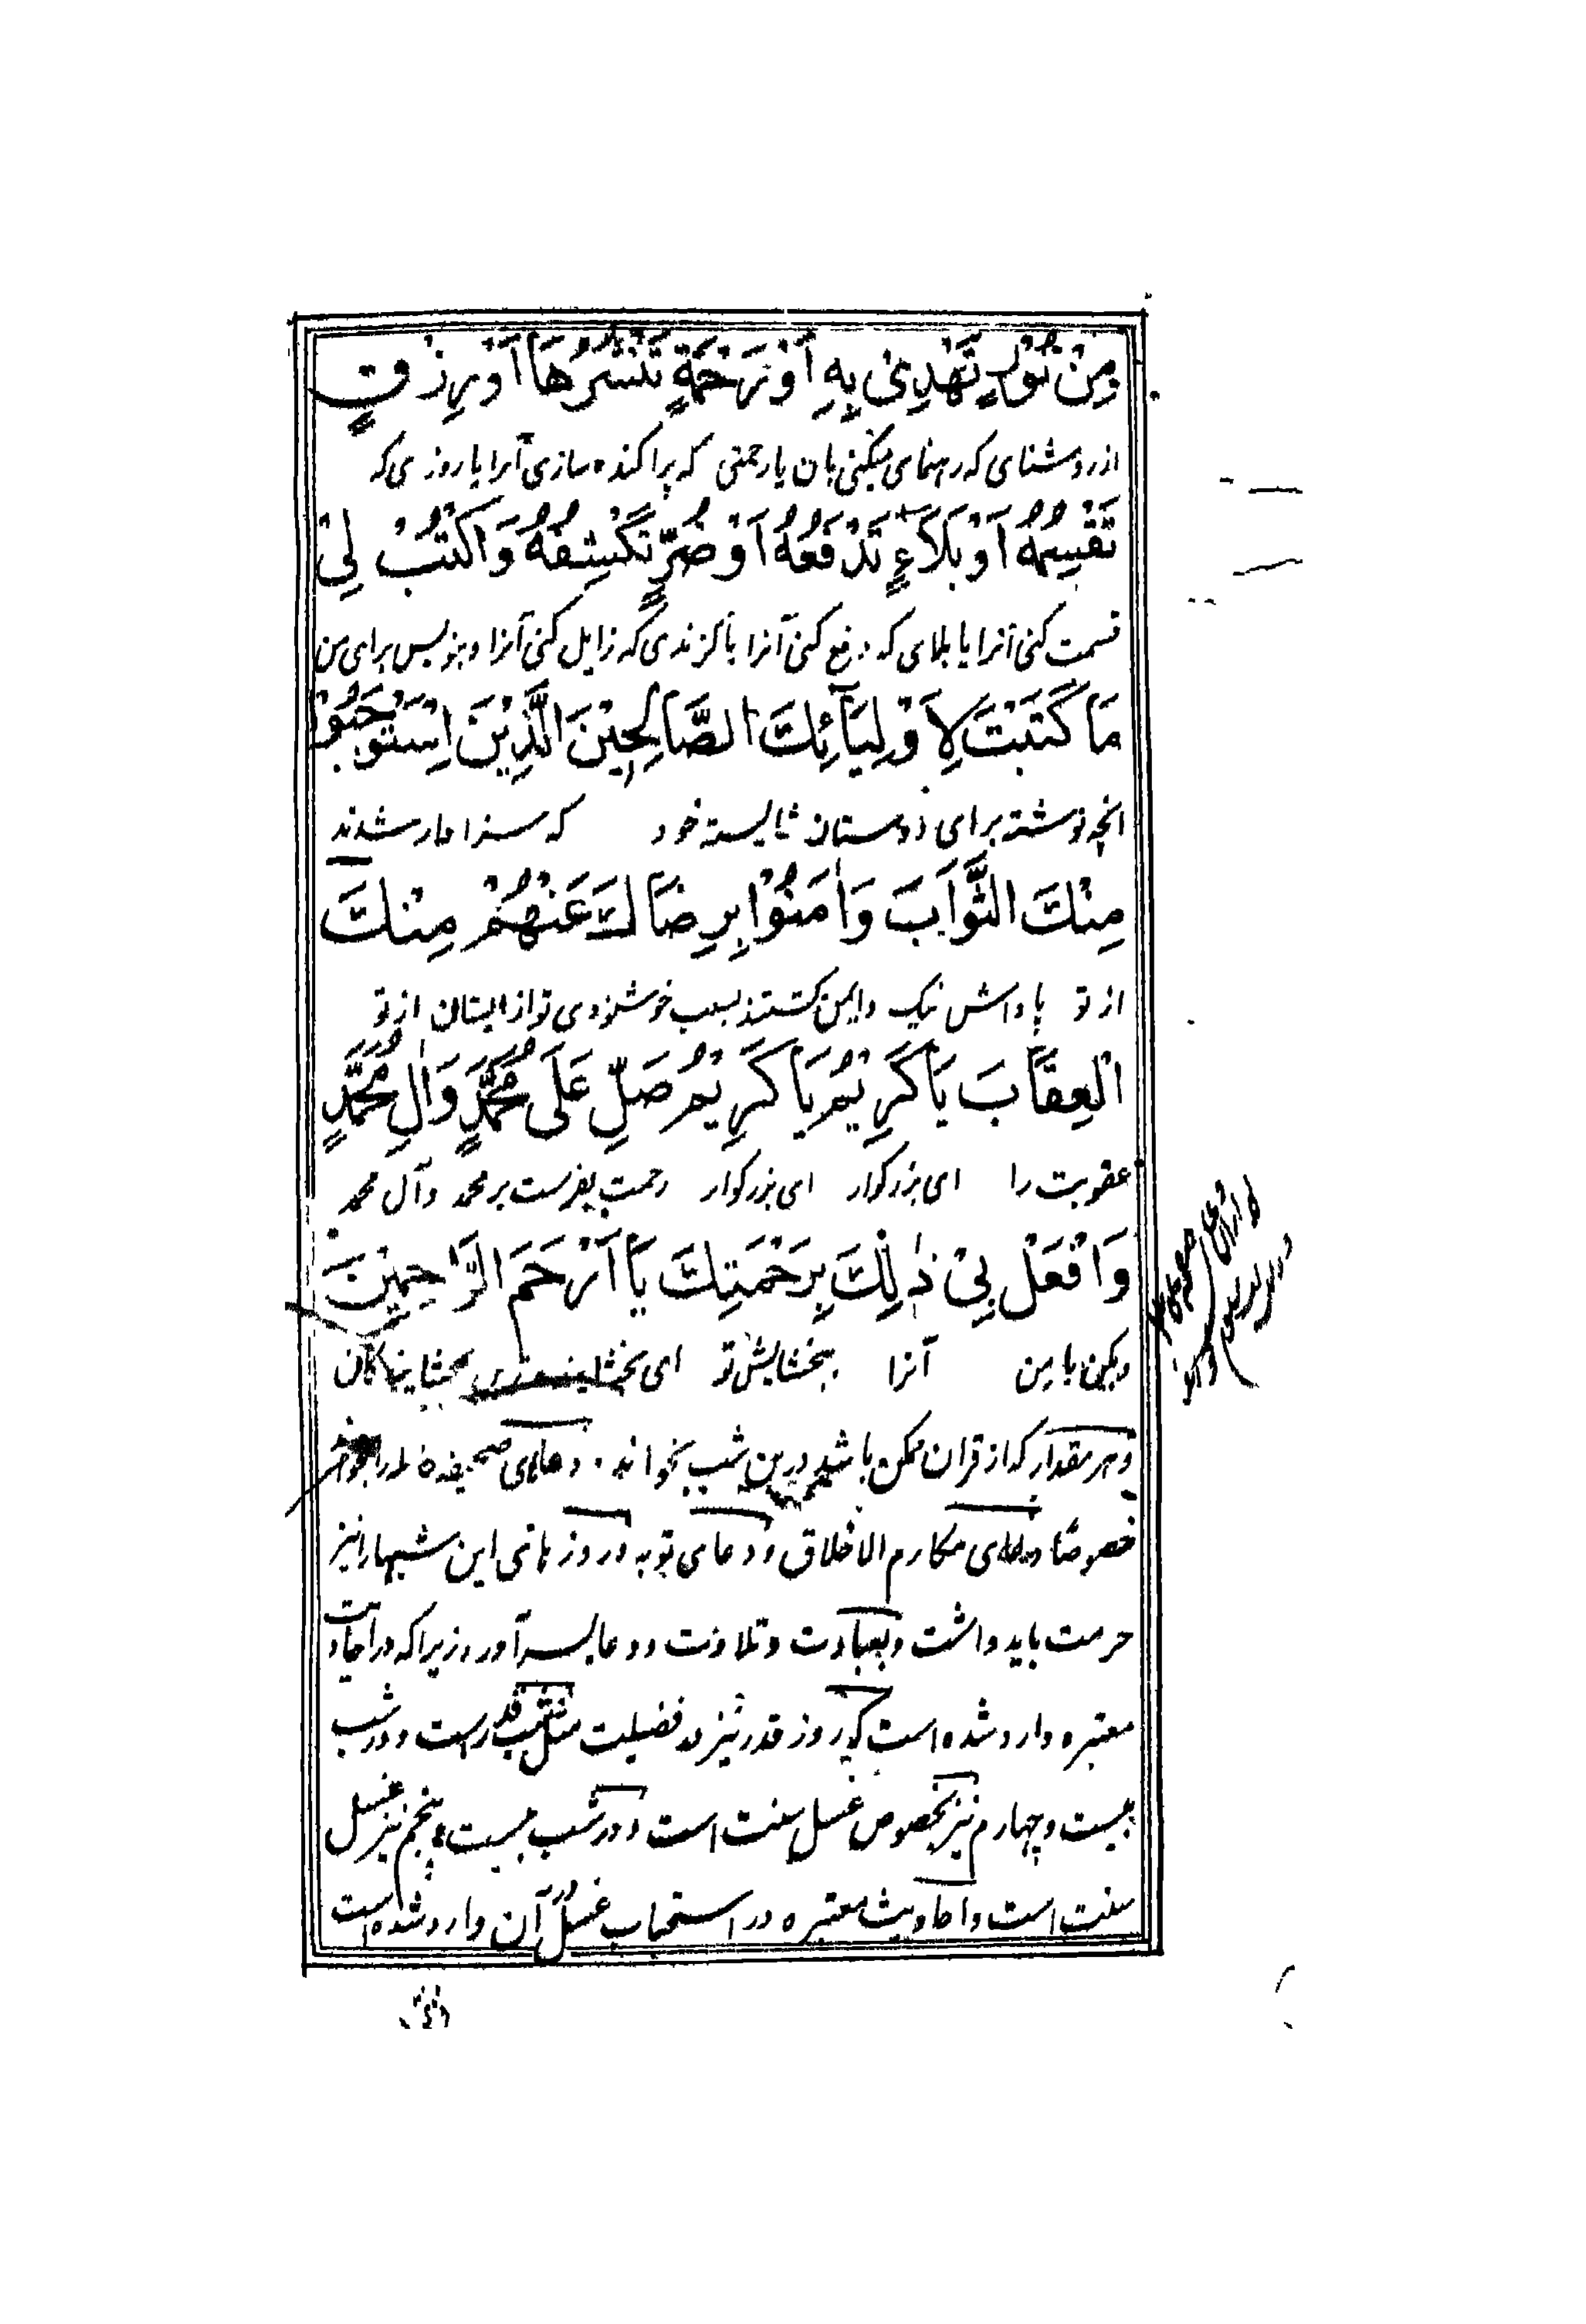 مِنْ نُوْرٍ تَهْدِيْ بِهِ اَوْ رَحْمَةٍ تَنْشُرُهَا اَوْ رِزْقٍ
از روشنای که رهنمای میکنی بان یا رحمتی که پراکنده سازی آنرا یا روزی که
تَقْسِمُهُ اَوْ بَلَاءٍ تَدْفَعُهُ اَوْ ضُرٍّ تَكْشِفُهُ وَاكْتُبْ لِيْ
قسمت کنی آنرا یا بلای که دفع کنی آنرا یا گزندی که زایل کنی آنرا و بنویس برای من
مَا كَتَبْتَ لِاَوْلِيَآئِكَ الصَّالِحِيْنَ الَّذِيْنَ اسْتَوْجَبُوْا
انچه نوشته برای دوستان شایسته خود که سزاوار شدند
مِنْكَ الثَّوَابَ وَاٰمَنُوْا بِرِضَاكَ عَنْهُمْ مِنْكَ
از تو پاداش نیک و ایمن گشتند بسبب خوشنودی تو از ایشان از تو
الْعِقَابَ يَا كَرِيْمُ يَا كَرِيْمُ صَلِّ عَلَى مُحَمَّدٍ وَاٰلِ مُحَمَّدٍ
عقوبت را ای بزرکوار ای بزرکوار رحمت بفرست بر محمد و آل محمد
وَافْعَلْ بِيْ ذٰلِكَ بِرَحْمَتِكَ يَا اَرْحَمَ الرَّاحِمِيْنَ
و بکن با من آنرا ببخشایش تو ای بخشاینده ترین بخشایندکان
و هر مقدار که از قران ممکن باشد درین شب بخواند و دعاهای صحیفه کامله را بخواند
خصوصًا دعای مکارم الاخلاق و دعای توبه و روزهای این شبها را نیز
حرمت باید داشت و بعبادت و تلاوت و دعا بسر آورد زیرا که در احادیث
معتبره وارد شده است که روز قدر نیز در فضیلت مثل شب قدر است و در شب
بیست و چهارم نیز بخصوص غسل سنت است و در شب بیست و پنجم نیز غسل
سنت است و احادیث معتبره در استحباب غسل در آن وارد شده است